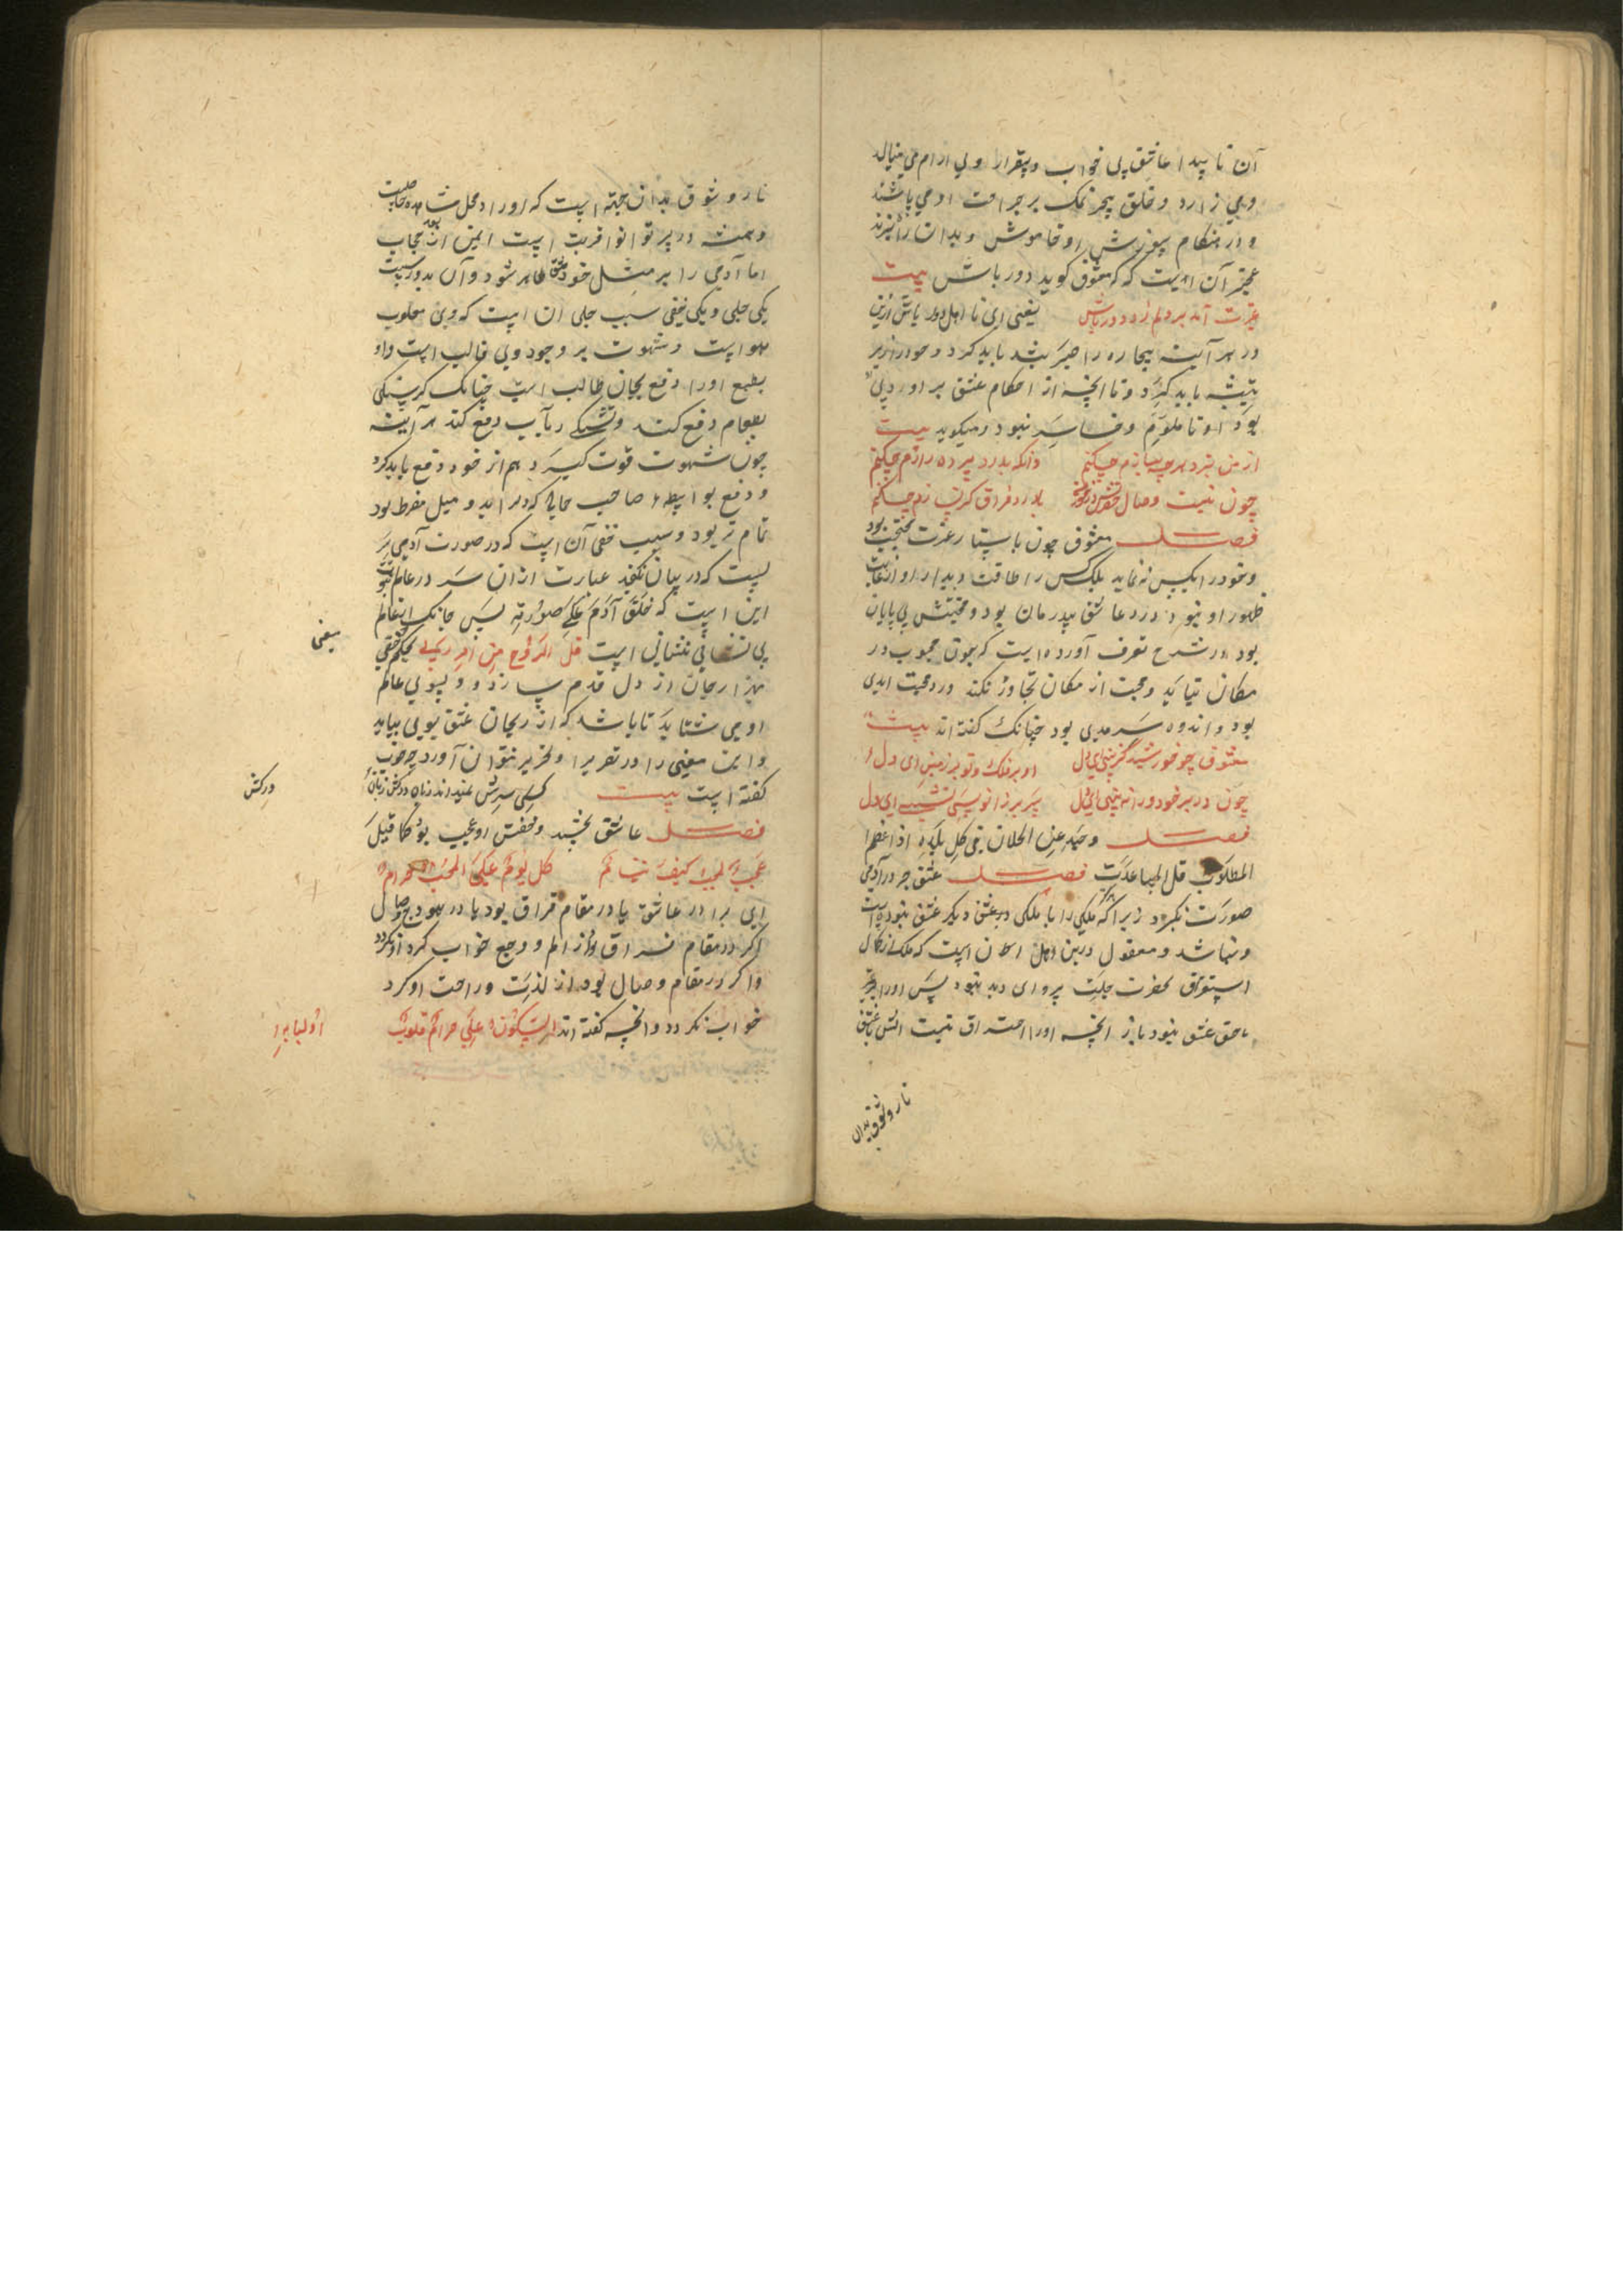 آن نا پیدا عاشق بی خواب و بیقرار و بی ارام می نالد
و می زارد و خلق بجز نمک بر جراحت او می پاشند
و در هنکام سوزش او خاموش و بدان
عجبتر آن است که معشوق کوید دور باش بیت
غیرت آمد بر دلم زد دور باش یعنی ای نا اهل دور باش ازین
در هر آینه بیچاره را صبر بیشه باید کرد و خود را زیر
تیشه باید کرد و تا انچه از احکام عشق بر او رود پی
بود او تا ملوم و خاسر نبود و میکوید بیت
از من نبرد هرچه بیازم چکنم وانکه بدرد پرده رازم چکنم
چون نیست وصال با درد فراق کر نسازم چکنم
فصل معشوق چون باستار عزت محتجب بود
و خود را بکس ننماید بلک کس را طاقت دیدار او از غایت
ظهور او نبود درد عاشق بیدرمان بود و محنتش بی پایان
بود در شرح تعرف آورده است که چون محبوب در
مکان نیاید و محبت از مکان تجاوز نکند درد محبت ابدی
بود و اندوه سرمدی بود چنانک کفته اند بیت
معشوق چو خورشید کزینی ای دل او بر فلک و تو بر زمینی ای دل
چون در بر خود ورا نه بینی ای دل سر بر زانو بسی نشینی ای دل
فصل وحید عن الخلان فی کل بلدة اذا عظم
المطلوب قل المساعدت فصل عشق جز در آدمی
صورت نکیرد زیرا که ملکی را با ملکی دیکر عشق نبوده است
و نباشد و معقول درین اهل آن است که ملک از کمال
استغراق بحضرت جلیت پروای دید نبود پس اورا
عشق نبود باز انچه اورا احتراق نیست اتش عشق
نار و شوق بدان
نار و شوق بدان جهة است که اورا در محل مشاهده
و همیشه در پرتو انوار قربت است ایمن از حجاب
اما آدمی را بر مثل خود عشق ظاهر شود و آن بدو سبب است
یکی جلی و یکی خفی سبب جلی آن است که وی مغلوب
هوا است و شهوت بر وجود وی غالب است و او
بطبع اورا دفع بجان طالب است چنانک کرسنکی
بطعام دفع کند و تشنکی بآب دفع کند هر آینه
چون شهوت قوت کیرد هم از خود دفع باید کرد
و دفع بواسطه صاحب جمالی که دلرا بدو میل مفرط بود
تمام تر بود و سبب خفی آن است که در صورت آدمی سر
یست که در بیان نکنجد عبارت ازان سر در عالم نبوت
این است که خلق آدم علی صورته پس جانک از عالم
بی نشانی نشانی است قل الروح من امر ربی بحکم خفی
یعنی
بهزار جان از دل قدم سازد و بسوی عالم
او می شتابد تا باشد که از ریحان عشق بویی بیابد
و این معنی را در تقریر و تحریر نتوان آورد چه خوب
کفته است بیت کسی سرش نمیداند زبان درکش زبان
درکش
فصل عاشق نخسپد و خفتن او عجیب بود کما قیل
عجبا للمحب کیف ینام کل نوم علی المحب حرام
ای برادر عاشق یا در مقام فراق بود یا در وصال
اکر در مقام فراق بود از الم و وجع خواب کرد او نکردد
و اکر در مقام وصال بود از لذت و راحت او کرد
خواب نکردد و انچه کفته اند السکون علی حرام قلوب
اولیایه